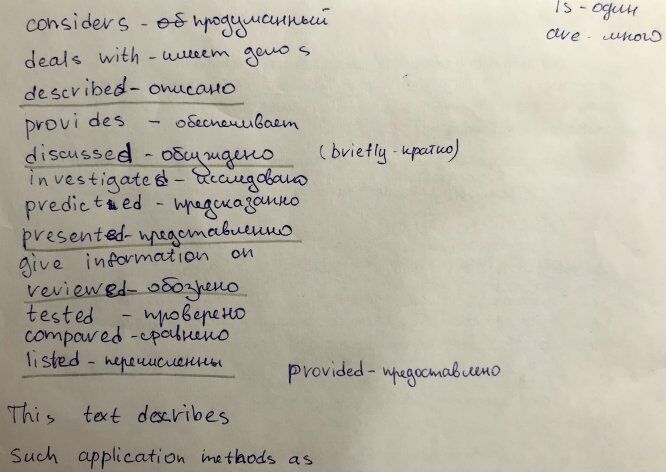 considers - продуманный
is - один
are - много
deals with - имеет дело s
described - описано
provides - обеспечивает
discussed - обсуждено (briefly - кратко)
investigated - исследовано
predicted - предсказанно
presented - представленно
give information on
reviewed - обозрено
tested - проверено
compared - сравнено
listed - перечисленны
provided - предоставлено
This text describes
Such application methods as